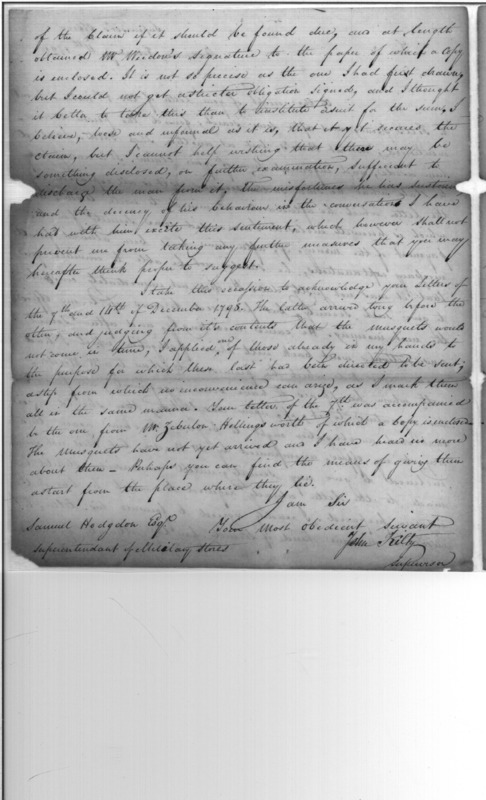 of the Claim if it should be found due, and at length
obtained Mr Weedon's signature to the paper of which a Copy
is enclosed. It is not so precise as the one I had first drawn,
but I could not get a stricter obligation signed, and I thought
it better to take this than to institute a suit for the sum. I
believe, loose and informal as it is, that it yet secures the
claim, but I cannot help wishing that there may be
something disclosed, on further examination, sufficient to
discharge the man from it; the misfortunes he has sustained
and the decency of his behaviour in the conversations I have
had with him excite this sentiment, which however shall not
prevent me from taking any further measures that you may
hereafter think proper to suggest.
I take this occasion to acknowledge your Letters of
the 7th and 14th of December 1795. The latter arrived long before the
other, and judging from it's contents that the musquets would
not come in time, I applied of those already on my hands to
the purpose for which these last had been directed to be sent;
a step from which no inconvenience can arize, as I mark them
all in the same manner. Your letter of the 7th was accompanied
by the one from Mr. Zebulon Hollingsworth of which a Copy is enclosed
The Musquets have not yet arrived and I have heard no more
about them – Perhaps you can find the means of giving them
a start from the place where they lie.
I am Sir
Samuel Hodgdon Esqr. Your Most Obedient Servant
Superintendant of Military Stores John Kilty
Supervisor